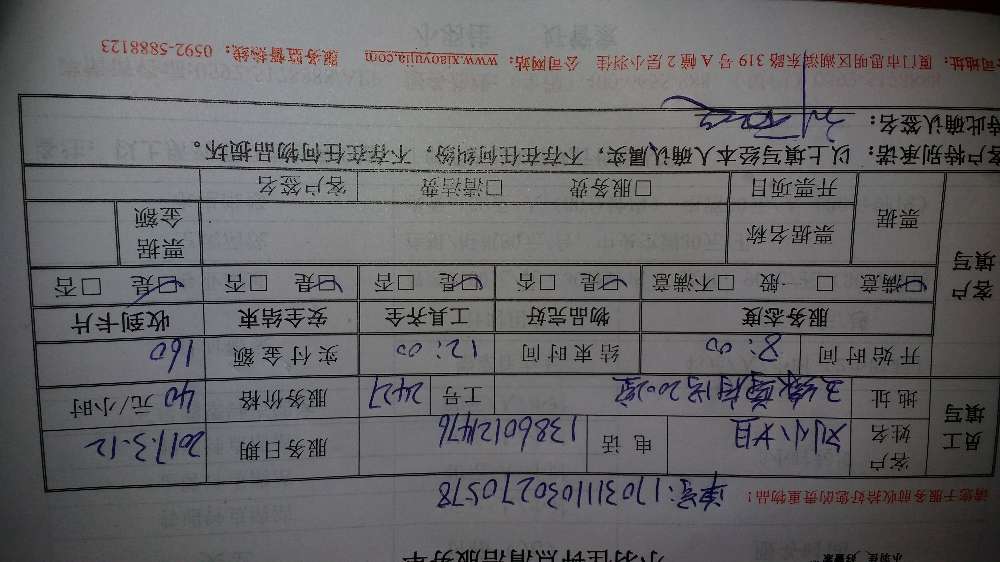 小羽佳 好管家
小羽佳钟点清洁服务单
请您于服务前收拾好您的贵重物品！ 单号：170311030270578
员工填写 客户姓名 刘小姐 电话 13860124476 服务日期 2017.3.12
地址 工号 2427 服务价格 40元/小时
开始时间 8：00 结束时间 12：00 实付金额 160
客户填写 服务态度 物品完好 工具齐全 安全结束 收到卡片
☑满意 □一般 □不满意 ☑是 □否 ☑是 □否 ☑是 □否 ☑是 □否
票据 票据名称 票据金额
开票项目 □服务费 □清洁费 客户签名
客户特别承诺：以上填写经本人确认属实，不存在任何纠纷，不存在任何物品损坏。
特此确认签名：
公司地址：厦门市思明区湖滨东路319号A幢2层小羽佳 公司网站：www.xiaoyujia.com 服务监督热线：0592-5888123